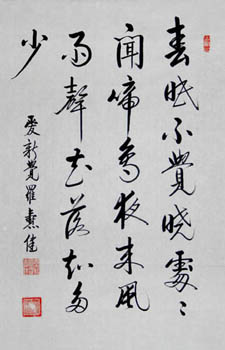 春眠不覺晓處〻
聞啼鳥夜来風
雨聲花落知多
少
愛新覺羅